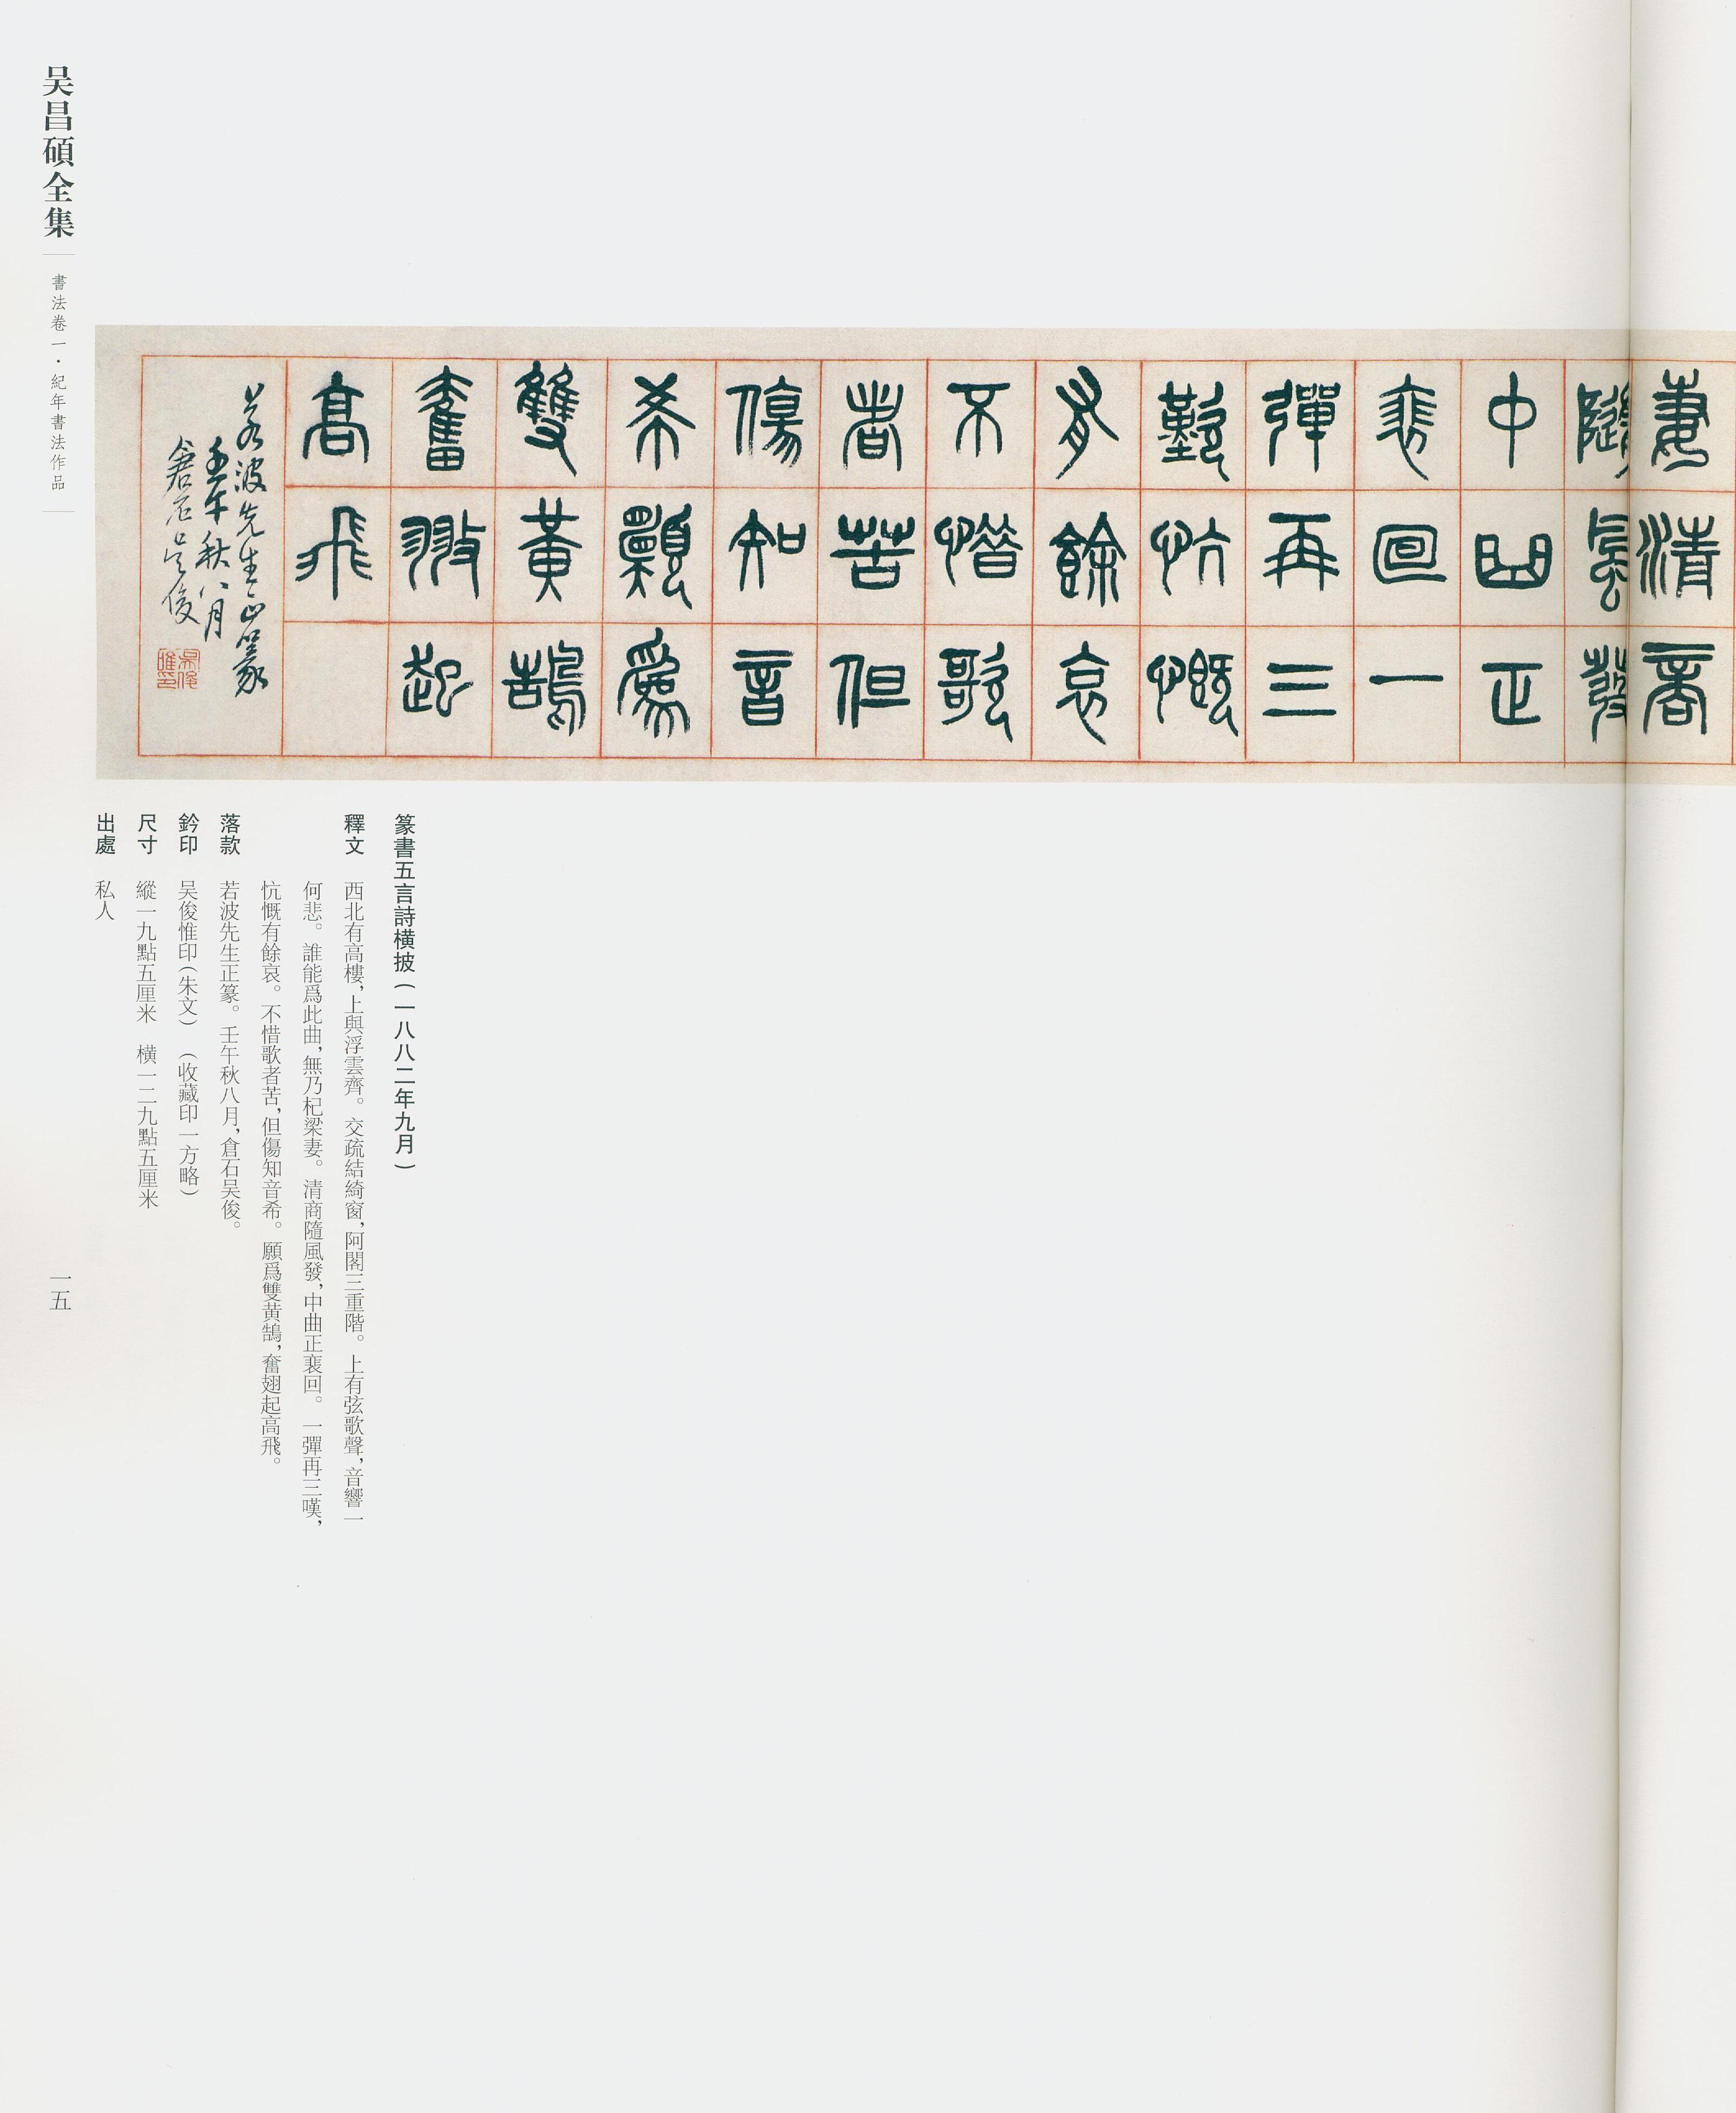 妻清商
隨風發
中曲正
裵回一
彈再三
歎忼慨
有餘哀
不惜歌
者苦但
傷知音
希願爲
雙黃鵠
奮翅起
高飛
若波先生正篆
壬午秋八月
倉石吴俊
篆書五言詩橫披(一八八二年九月)
釋文 西北有高樓,上與浮雲齊。交疏結綺窗,阿閣三重階。上有弦歌聲,音響一
何悲。誰能爲此曲,無乃杞梁妻。清商隨風發,中曲正裵回。一彈再三嘆,
忼慨有餘哀。不惜歌者苦,但傷知音希。願爲雙黄鵠,奮翅起高飛。
落款 若波先生正篆。壬午秋八月,倉石吴俊。
鈐印 吴俊惟印(朱文) (收藏印一方略)
尺寸 縱一九點五厘米 橫一二九點五厘米
出處 私人
吴昌碩全集
書法卷一·紀年書法作品
一五